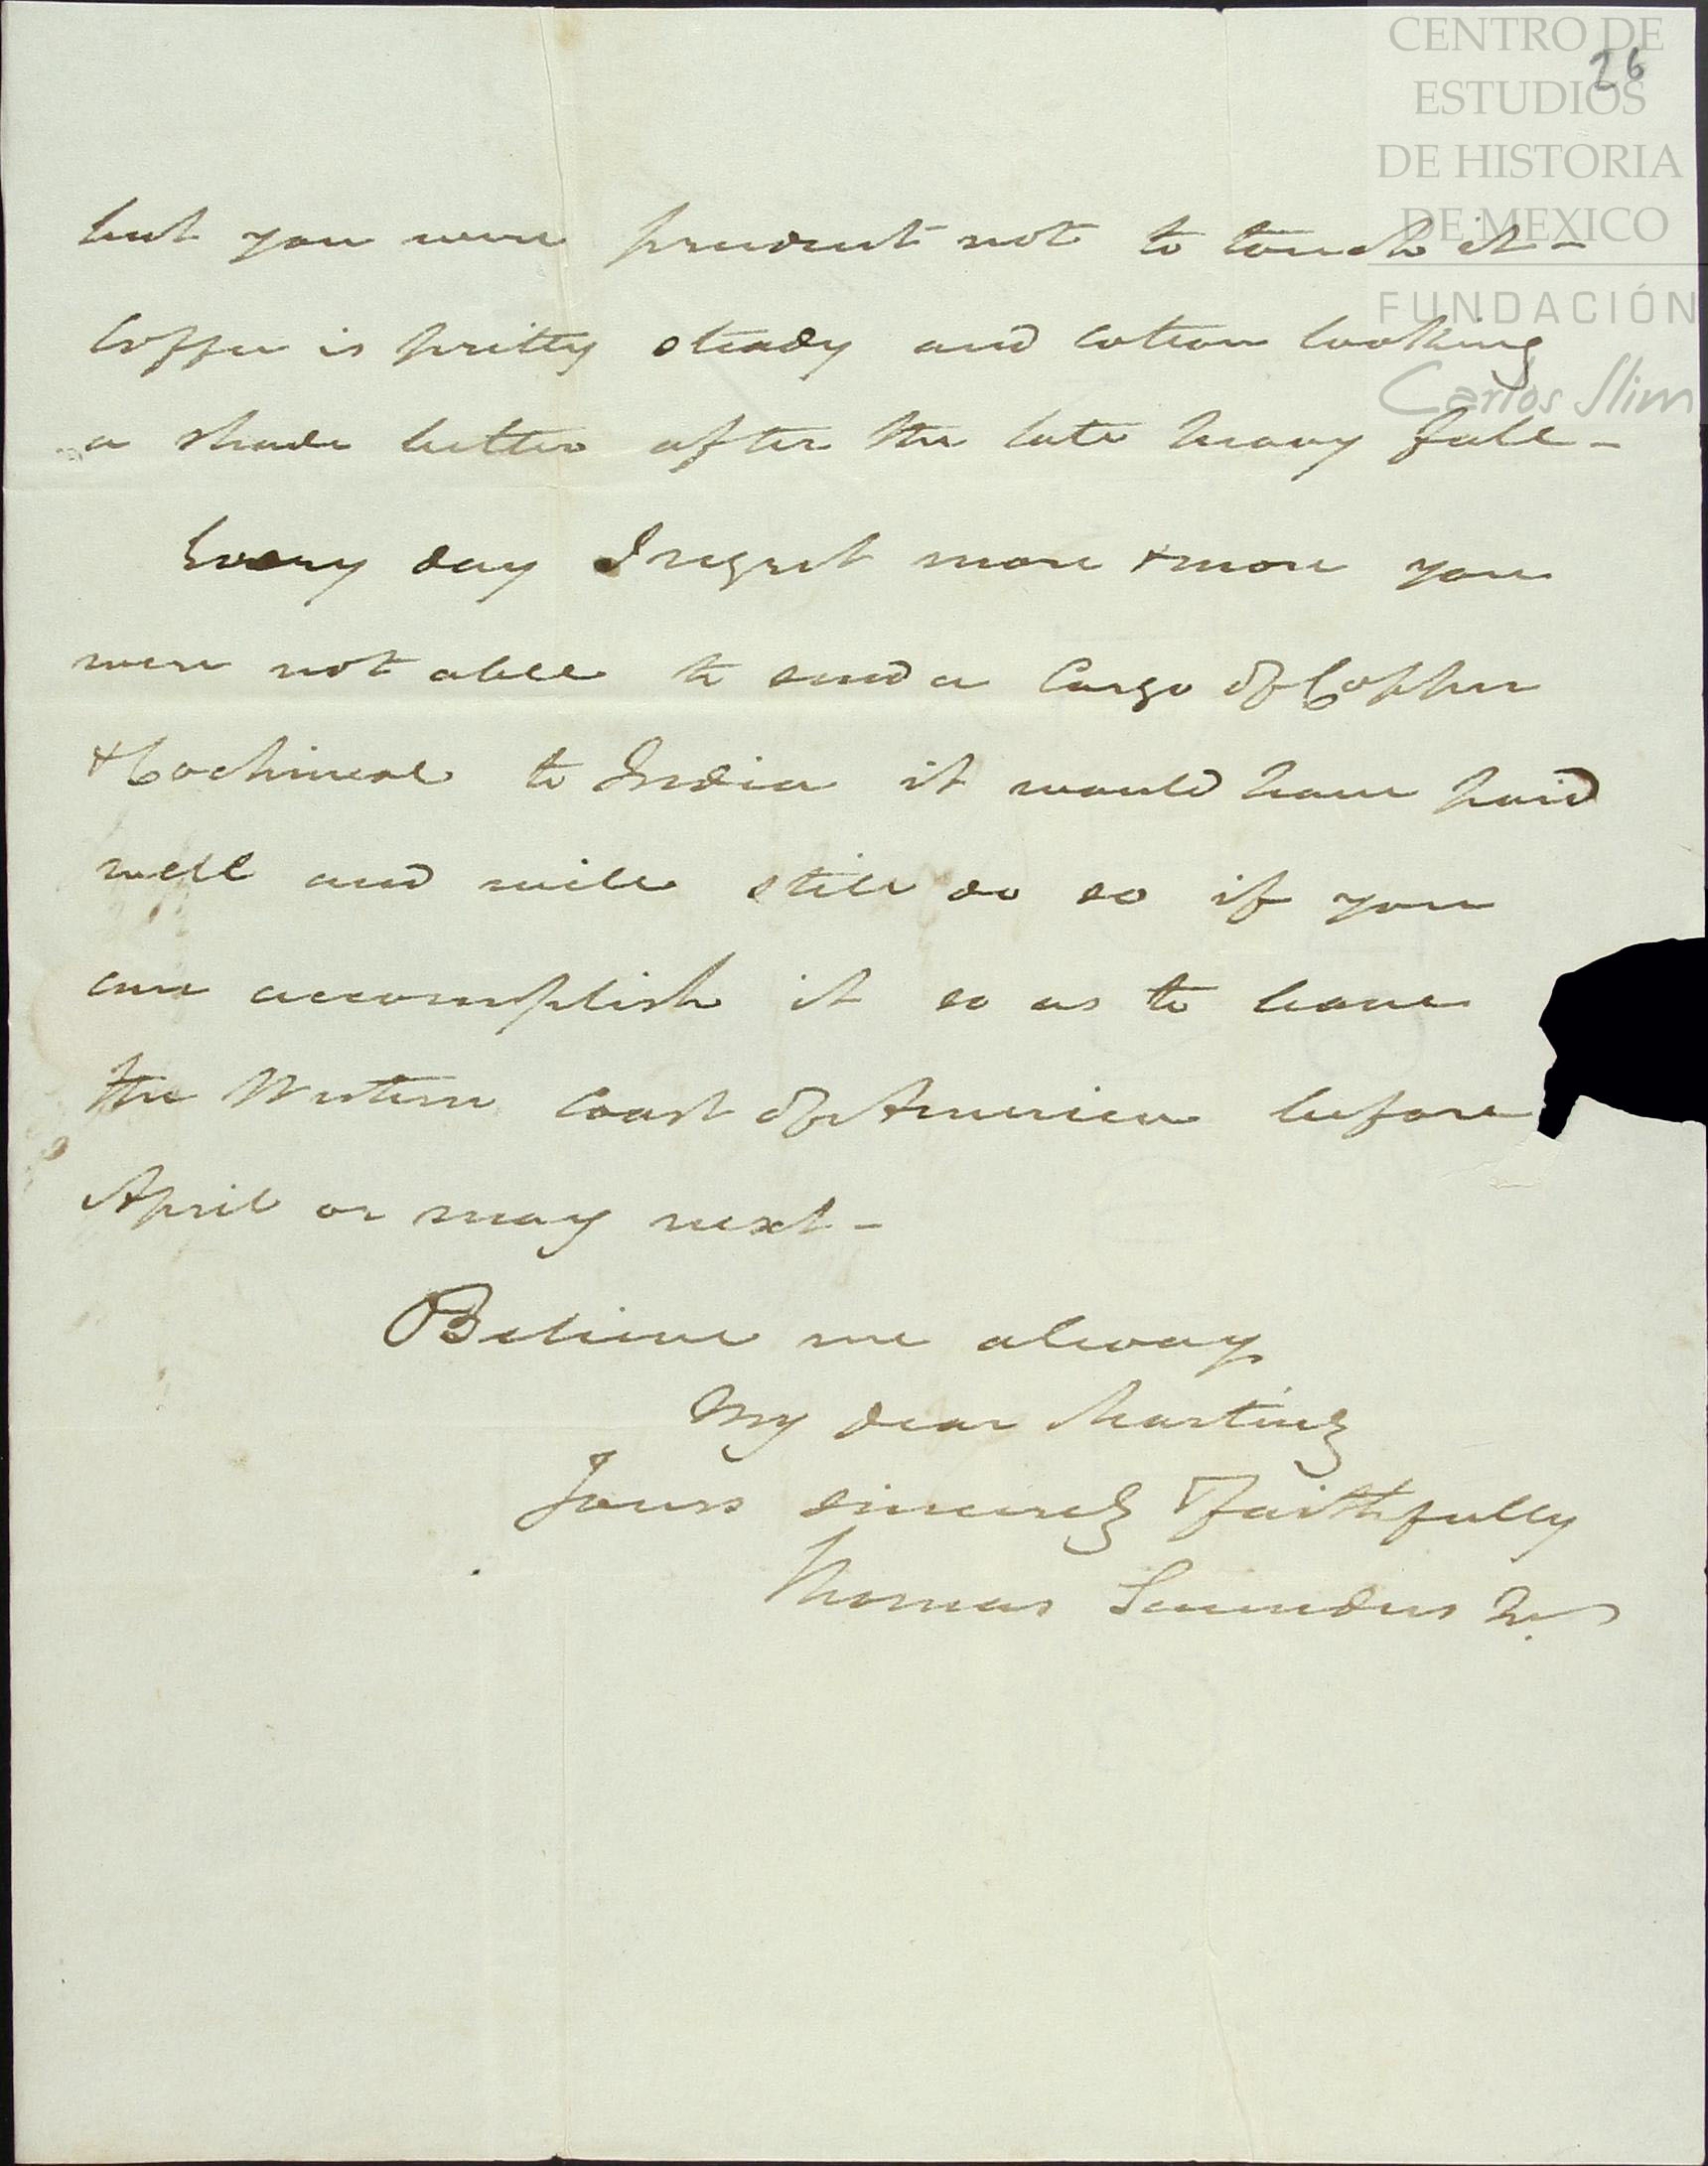 CENTRO DE
ESTUDIOS
DE HISTORIA
DE MEXICO
FUNDACIÓN
Carlos Slim
26
but you were prudent not to touch it -
Coffee is pritty steady and cotton looking
a shade better after the late heavy fall -
Every day I regret more & more you
were not able to send a Cargo of Copper
& Cochineal to India it would have paid
well and will still do so if you
can accomplish it so as to leave
the Western Coast of America before
April or may next -
Believe me always
My dear Martinz
Yours sincerely & faithfully
Thomas Saunders